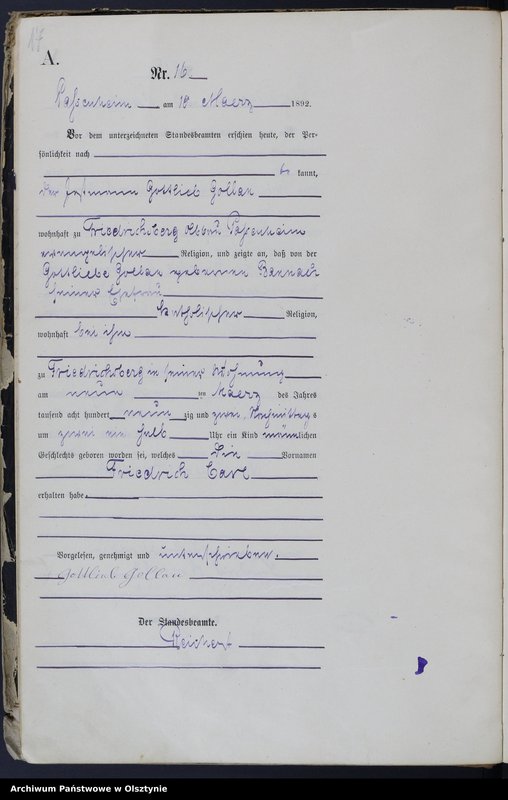 17
A.
Nr. 16
Passenheim am 18 Maerz 1892.
Vor dem unterzeichneten Standesbeamten erschien heute, der Per-
sönlichkeit nach
be kannt,
der Gottlieb Gollan
wohnhaft zu Friedrichsberg Passenheim
evangelischer Religion, und zeigte an, daß von der
Gottliebe Gollan geborenen Bannach
seiner Ehefrau
katholischer Religion,
wohnhaft bei ihm
zu Friedrichsberg in seiner Wohnung
am neun ten Maerz des Jahres
tausend acht hundert neun zig und zwei, Nachmittag s
um zwei ein halb Uhr ein Kind männlichen
Geschlechts geboren worden sei, welches die Vornamen
Friedrich Carl
erhalten habe.
Vorgelesen, genehmigt und unterschrieben.
Gottlieb Gollan
Der Standesbeamte.
Reichert
Archiwum Państwowe w Olsztynie